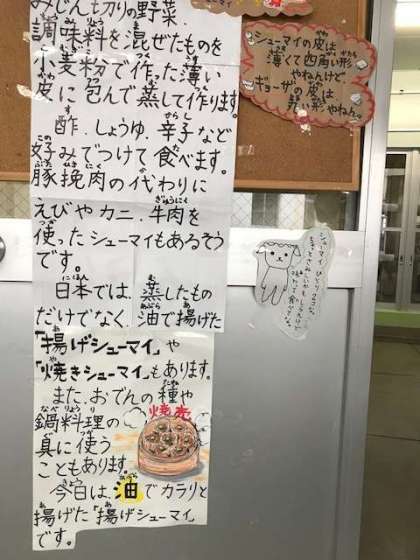 みじん切りの野菜、
調味料を混ぜたものを
小麦粉で作った薄い
皮に包んで蒸して作ります。
酢、しょうゆ、辛子など
好みでつけて食べます。
豚挽肉の代わりに
えびやカニ、牛肉を
使ったシューマイもあるそう
です。
日本では、蒸したもの
だけでなく、油で揚げた
「揚げシューマイ」や
「焼きシューマイ」もあります。
また、おでんの種や
鍋料理の
具に使う
こともあります。
焼売
今日は、油でカラリと
揚げた「揚げシューマイ」
です。
シューマイの皮は
薄くて四角い形
やねんけど、
ギョーザの皮は
丸い形やねん。
シューマイ ひとり2コな。